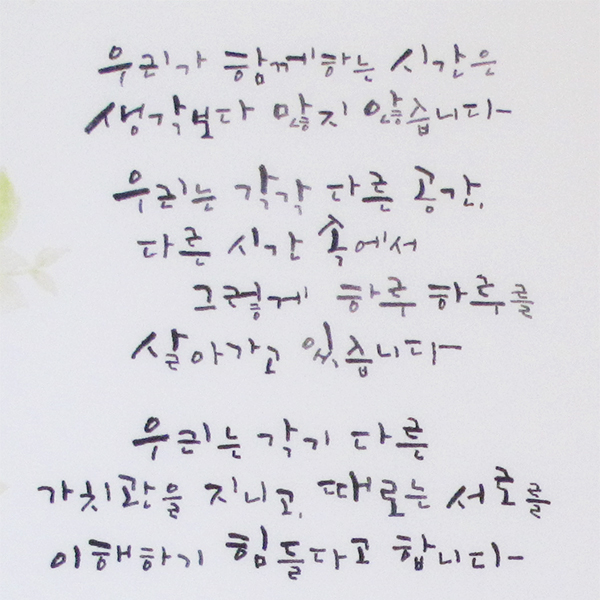 우리가 함께하는 시간은
생각보다 많지 않습니다
우리는 각각 다른 공간,
다른 시간 속에서
그렇게 하루 하루를
살아가고 있습니다
우리는 각기 다른
가치관을 지니고, 때로는 서로를
이해하기 힘들다고 합니다